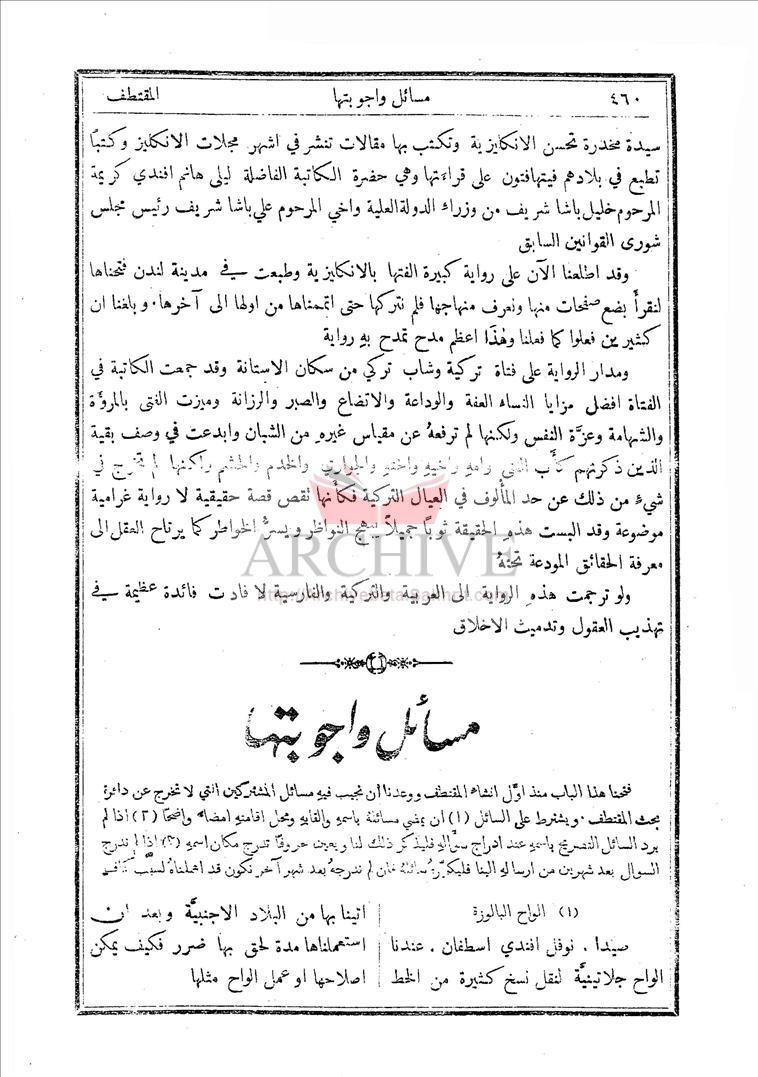 ٤٦٠ مسائل واجوبتها المقتطف
سيدة مخدرة تحسن الانكليزية وتكتب بها مقالات تنشر في اشهر مجلات الانكليز وكتبًا
تطبع في بلادهم فيتهافتون على قراءتها وهي حضرة الكاتبة الفاضلة ليلى هانم افندي كريمة
المرحوم خليل باشا شريف من وزراء الدولة العلية واخي المرحوم علي باشا شريف رئيس مجلس
شورى القوانين السابق
وقد اطلعنا الآن على رواية كبيرة الفتها بالانكليزية وطبعت في مدينة لندن فتحناها
لنقرأ بضع صفحات منها ونعرف منهاجها فلم نتركها حتى اتممناها من اولها الى آخرها. وبلغنا ان
كثيرين فعلوا كما فعلنا وهٰذا اعظم مدح تمدح به رواية
ومدار الرواية على فتاة تركية وشاب تركي من سكان الاستانة وقد جمعت الكاتبة في
الفتاة افضل مزايا النساء العفة والوداعة والاتضاع والصبر والرزانة وميزت الفتى بالمروَّة
والشهامة وعزَّة النفس ولكنها لم ترفعهُ عن مقياس غيره من الشبان وابدعت في وصف بقية
الذين ذكرتهم كأب الفتى وامهِ واخيهِ واختهِ والجواري والخدم والحشم ولكنها لم تخرج في
شيءٍ من ذلك عن حد المألوف في العيال التركية فكأنها تقص قصة حقيقية لا رواية غرامية
موضوعة وقد البست هذهِ الحقيقة ثوبًا جميلاً يبهج النواظر ويسرُّ الخواطر كما يرتاح العقل الى
معرفة الحقائق المودعة تحتهُ
ARCHIVE
ولو ترجمت هذهِ الرواية الى العربية والتركية والفارسية لافادت فائدة عظيمة في
تهذيب العقول وتدميث الاخلاق
مسائل واجوبتها
فتحنا هذا الباب منذ اوَّل انشاء المقتطف ووعدنا ان نجيب فيهِ مسائل المشتركين التي لا تخرج عن دائرة
بحث المقتطف. ويشترط على السائل (١) ان يمضي مسائلهُ باسمهِ والقابهِ ومحل اقامتهِ امضاءً واضحًا (٢) اذا لم
يرد السائل التصريح باسمهِ عند ادراج سؤالهِ فليذكر ذلك لنا ويعين حروفًا تدرج مكان اسمهِ (٣) اذا لم ندرج
السؤال بعد شهرين من ارسالهِ الينا فليكررهُ سائلهُ فان لم ندرجهُ بعد شهر آخر نكون قد اهملناهُ لسبب كافٍ
(١) الواح البالوزة
صيدا. نوفل افندي اسطفان. عندنا
الواح جلاتينيَّة لنقل نسخ كثيرة من الخط
اتينا بها من البلاد الاجنبيَّة وبعد ان
استعملناها مدة لحق بها ضرر فكيف يمكن
اصلاحها او عمل الواح مثلها